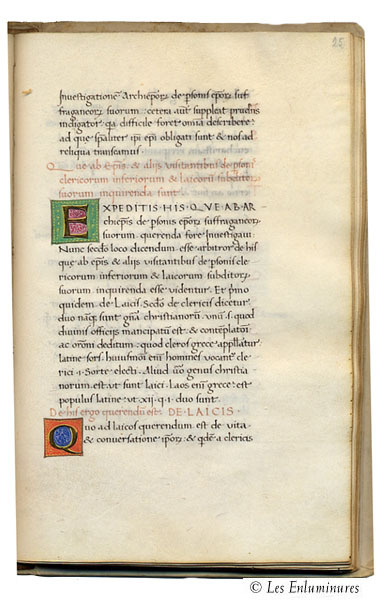 25
Investigatione Archiepor de psonis epor suf
fraganeor suorum: cetera aut suppleat prudens
indigator: qa difficile foret omia describere:
ad que spaliter ipi epi obligati sunt & nos ad
reliqua transeamus
Que ab Epis & alijs visitantibus de psonis
clericorum inferiorum & laicorum subditor
suorum inquirenda sunt
EXPEDITIS HIS QVE AB AR
chiepis de psonis epor suffraganeor
suorum querenda fore Investigaui
Nunc secdo loco dicendum esse arbitror de his
que ab epis & alijs visitantibus de psonis cle
ricorum inferiorum & laicorum subditor
suorum inquirenda esse videntur. Et pmo
quidem de Laicis. Secdo de clericis dicetur
duo nanq sunt gna christianorum. vnum s. quod
duinis officijs mancipatum est. & contemplatoi
ac oromi deditum: quod cleros grece appellatur
latine sors. huiusmoi enim homines vocantr cle
rici .i. Sorte electi. Aliud uo genus christia
norum est. ut sunt laici. Laos enim grece: est
populus latine vt xii. q. i. duo sunt.
De his ergo querendum est. DE LAICIS.
Quo ad laicos querendum est de vita
& conversatione ipor: & qde a clericis
© Les Enluminures